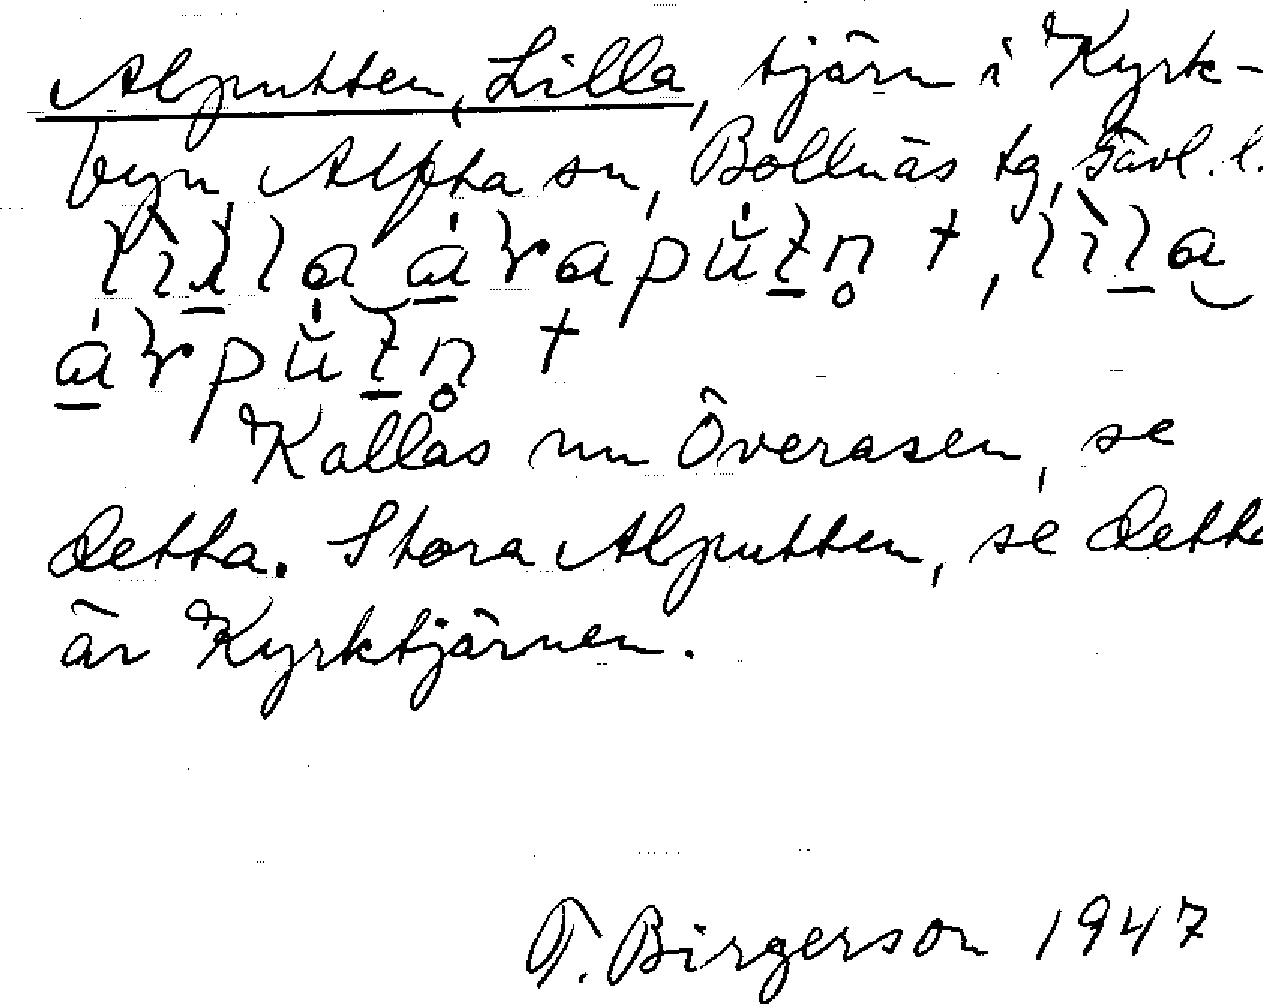 Alputten, Lilla, tjärn i Kyrk-
byn Alfta sn, Bollnäs tg, Gävl. l.
Kallas nu Överåsen, se
detta. Stora Alputten, se detta
är Kyrktjärnen.
T. Birgerson 1947